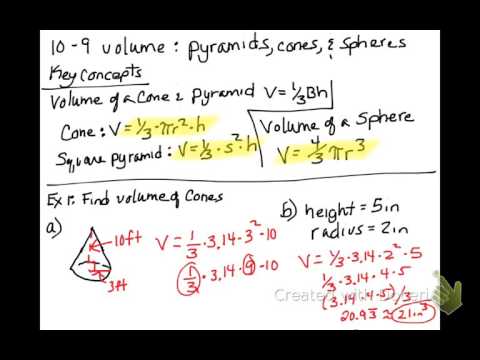 10-9 volume: pyramids, cones, & spheres
Key Concepts
Volume of a Cone & pyramid V = 1/3 Bh
Cone: V = 1/3 · πr² · h
Square pyramid: V = 1/3 · s² · h
Volume of a Sphere
V = 4/3 πr³
Ex 1: Find volume of Cones
a)
10ft
3ft
V = 1/3 · 3.14 · 3² · 10
1/3 · 3.14 · 9 · 10
b) height = 5in
radius = 2in
V = 1/3 · 3.14 · 2² · 5
1/3 · 3.14 · 4 · 5
(3.14 · 4 · 5)/3
20.93 ≈ 21in³
Created with Doceri